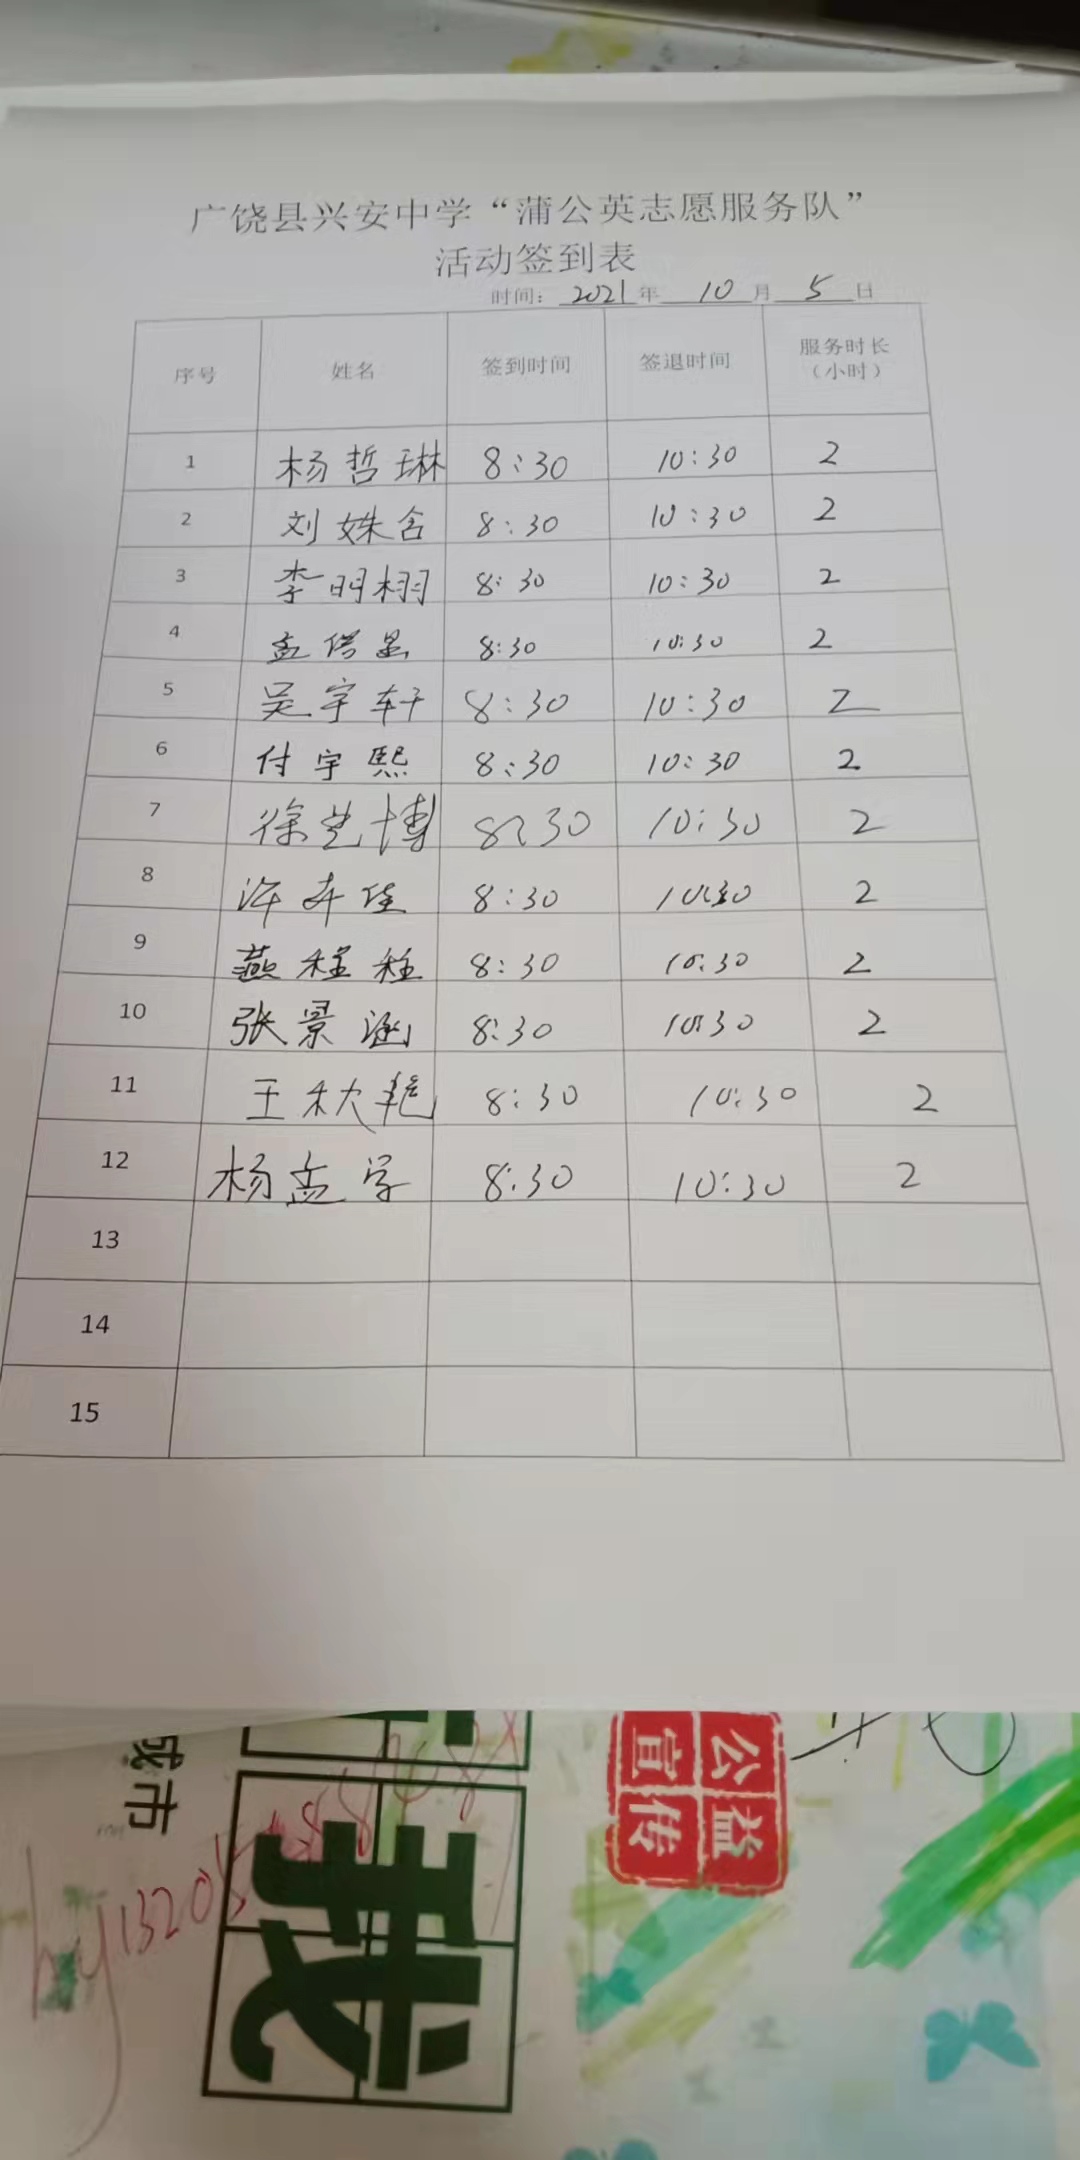 广饶县兴安中学“蒲公英志愿服务队”
活动签到表
时间：2021年10月5日
序号 姓名 签到时间 签退时间 服务时长（小时）
1 杨哲琳 8:30 10:30 2
2 刘姝含 8:30 10:30 2
3 李明栩 8:30 10:30 2
4 孟 8:30 10:30 2
5 吴宇轩 8:30 10:30 2
6 付宇熙 8:30 10:30 2
7 徐艺博 8:30 10:30 2
8 许奔佳 8:30 10:30 2
9 燕程程 8:30 10:30 2
10 张景涵 8:30 10:30 2
11 王秋艳 8:30 10:30 2
12 杨孟学 8:30 10:30 2
13
14
15
成市
我
公益
宣传